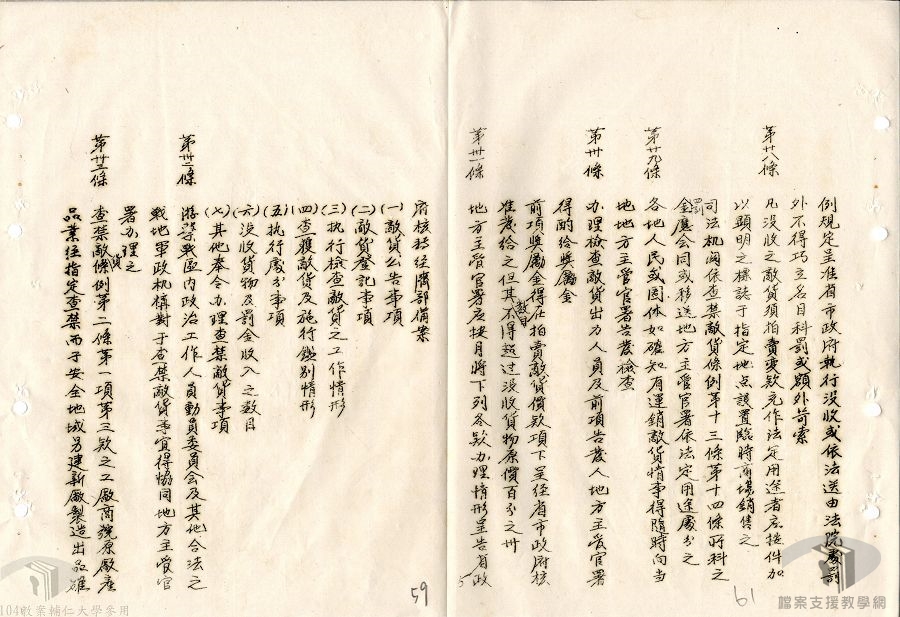 例規定呈准省市政府執行沒收或依法送由法院處罰
外不得巧立名目科罰或額外苛索
第廿八條
凡沒收之敵貨須拍賣變款充作法定用途者應按件加
以顯明之標誌于指定地点設置臨時商場銷售之
司法机関依查禁敵貨條例第十三條第十四條所科之
罰金應会同或移送地方主管官署依法定用途處分之
第廿九條
各地人民或团体如確知有運銷敵貨情事得隨時向当
地地方主管官署告發檢查
第卅條
办理檢查敵貨出力人員及前項告發人地方主管官署
得酌給獎勵金
前項獎勵金得在拍賣敵貨價款項下呈经省市政府核
准發给之但其數目不得超过沒收貨物原價百分之卅
第卅一條
地方主管官署应按月將下列各款办理情形呈告省政
府核轉经濟部備案
(一)敵貨公告事項
(二)敵貨登記事項
(三)执行檢查敵貨之工作情形
(四)查獲敵貨及施行鑑別情形
(五)执行處分事項
(六)沒收貨物及罰金收入之数目
(七)其他奉令办理查禁敵貨事項
第卅二條
游击戰區内政治工作人員動員委員会及其他合法之
戰地軍政机構對于查禁敵貨事宜得協同地方主管官
署办理之
第卅三條
查禁敵貨條例第二條第一項第三款之工廠商號原廠產
品業经指定查禁而于安全地域另建新廠製造出品確
59
61
104敵案輔仁大學參用
檔案支援教學網